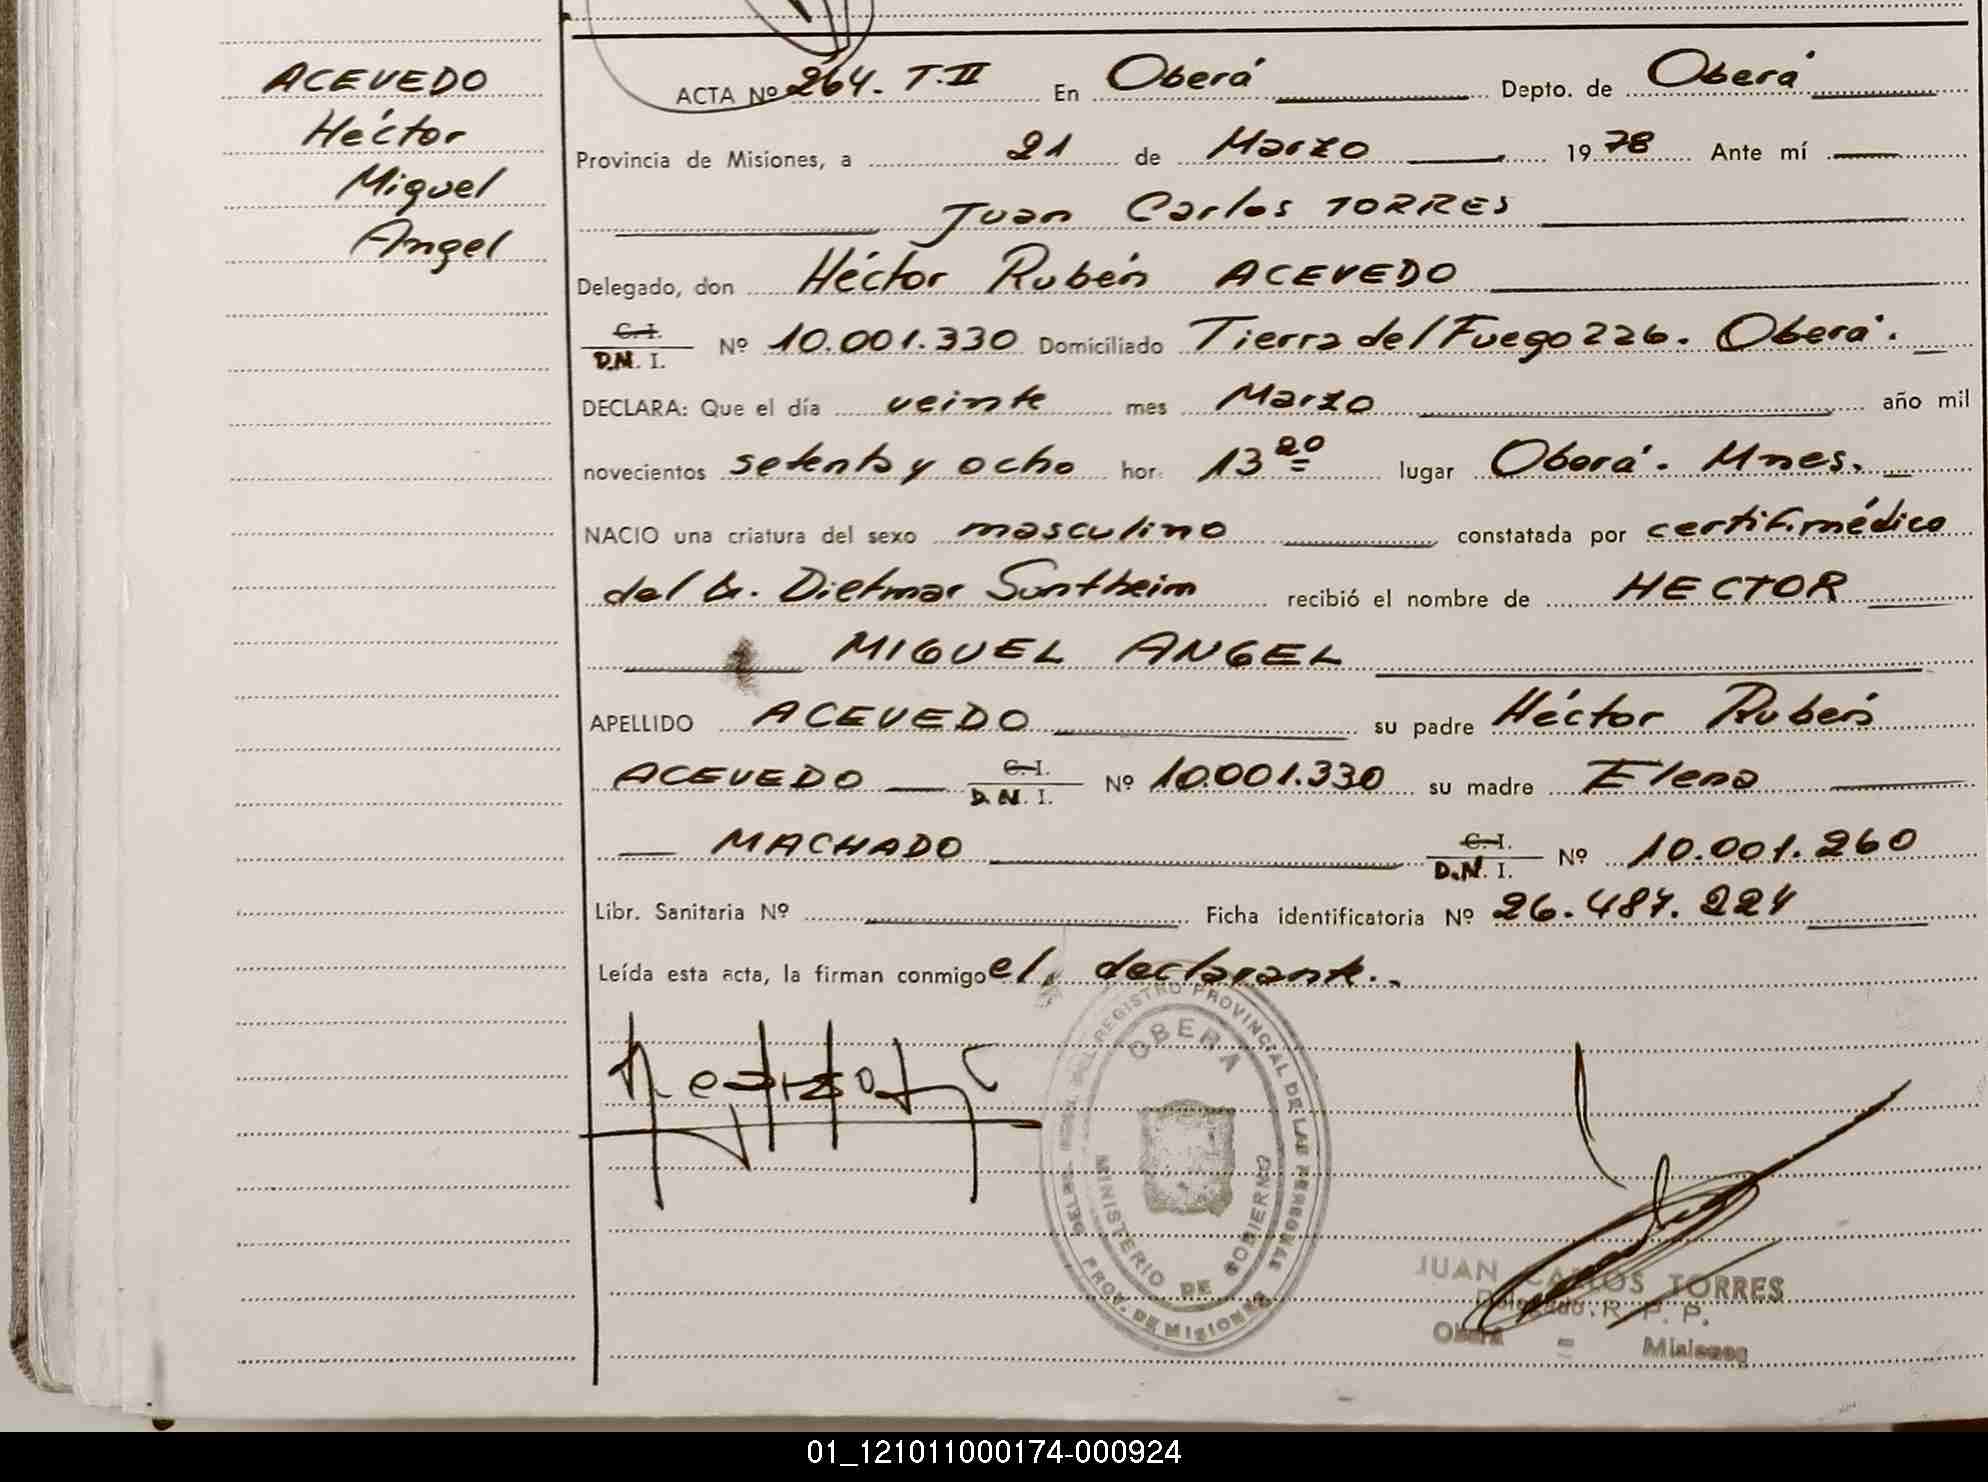 ACEVEDO
Héctor
Miguel
Angel
ACTA Nº 264. T.II En Oberá Depto. de Oberá
Provincia de Misiones, a 21 de Marzo 1978 Ante mí
Juan Carlos TORRES
Delegado, don Héctor Rubén ACEVEDO
C.I.
D.N.I. Nº 10.001.330 Domiciliado Tierra del Fuego 226. Oberá.
DECLARA: Que el día veinte mes Marzo año mil
novecientos setenta y ocho hor. 13 20 lugar Oberá. Mnes.
NACIO una criatura del sexo masculino constatada por certif. médico
del Dr. Dietmar Sontheim recibió el nombre de HECTOR
MIGUEL ANGEL
APELLIDO ACEVEDO su padre Héctor Rubén
ACEVEDO C.I.
D.N.I. Nº 10.001.330 su madre Elena
MACHADO C.I.
D.N.I. Nº 10.001.260
Libr. Sanitaria Nº Ficha identificatoria Nº 26.487.224
Leída esta acta, la firman conmigo el declarante.
REGISTRO PROVINCIAL DE LAS PERSONAS
OBERA
MINISTERIO DE GOBIERNO
PROV. DE MISIONES
JUAN CARLOS TORRES
Delegado. R. P. P.
Oberá = Misiones
01_121011000174-000924